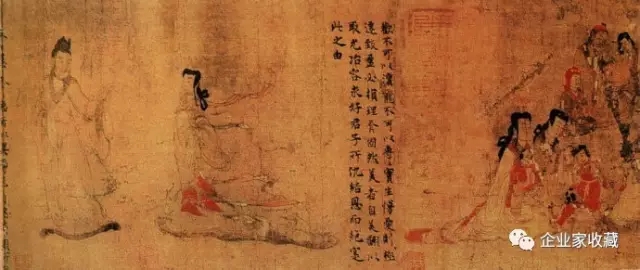 歡不可以瀆寵不可以專實生慢愛則極
遷致盈必損理有固然美者自美翩以
取尤冶容求好君子所仇結恩而絕寔
此之由
企业家收藏